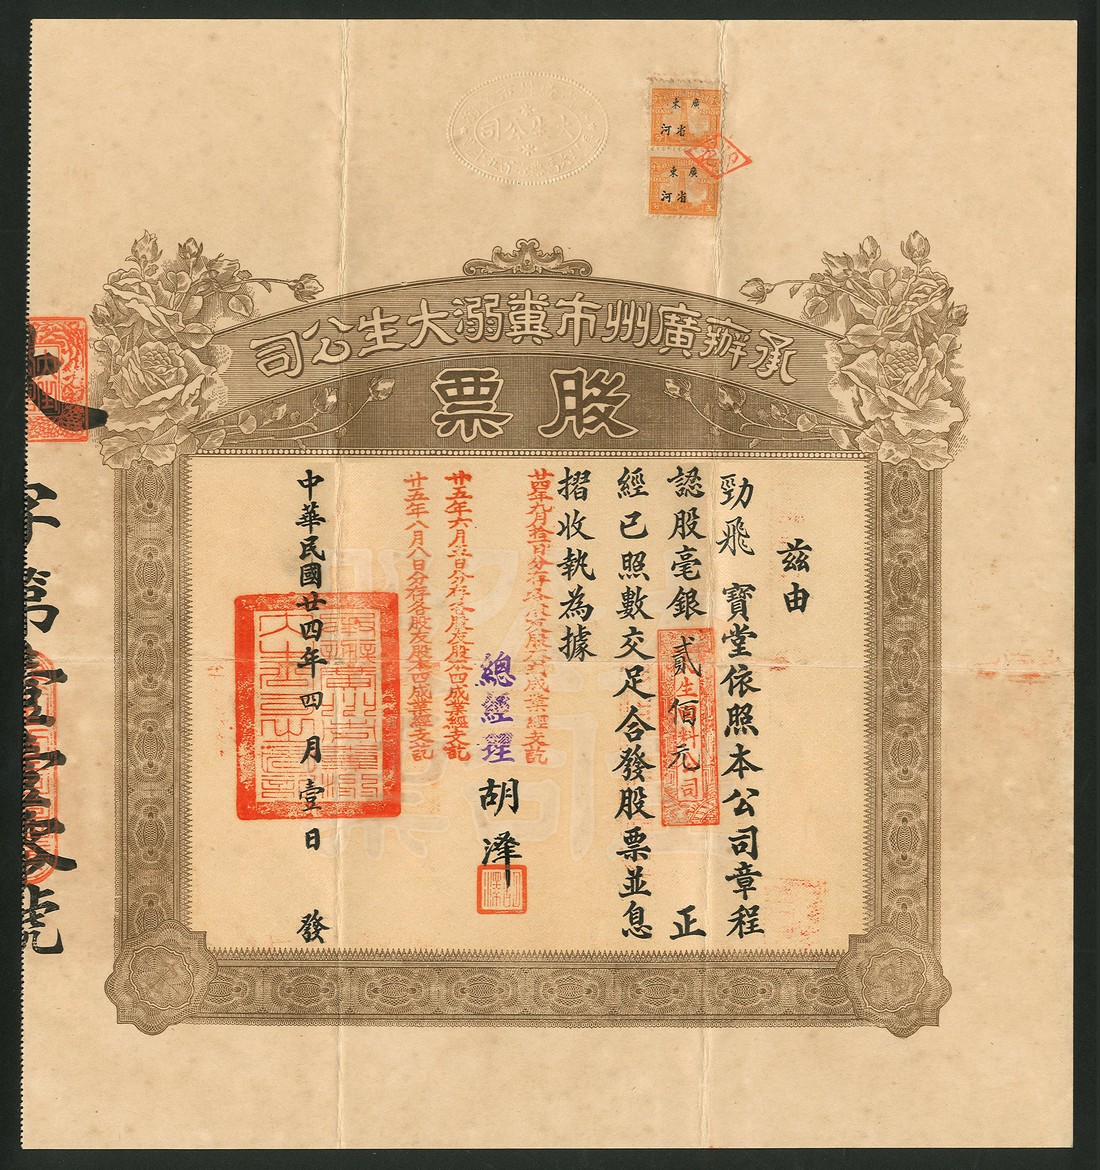 承辦廣州市糞溺大生公司
股票
茲由
勁飛 寶堂依照本公司章程
認股毫銀貳佰元 正
經已照數交足合發股票並息
摺收執為據
總經理 胡澤
廿五年六月三日分存各股友股本四成業經支訖
廿五年八月八日分存各股友股本四成業經支訖
中華民國廿四年四月壹日 發
廣東
省河
廣東
省河
大生公司
字第
號